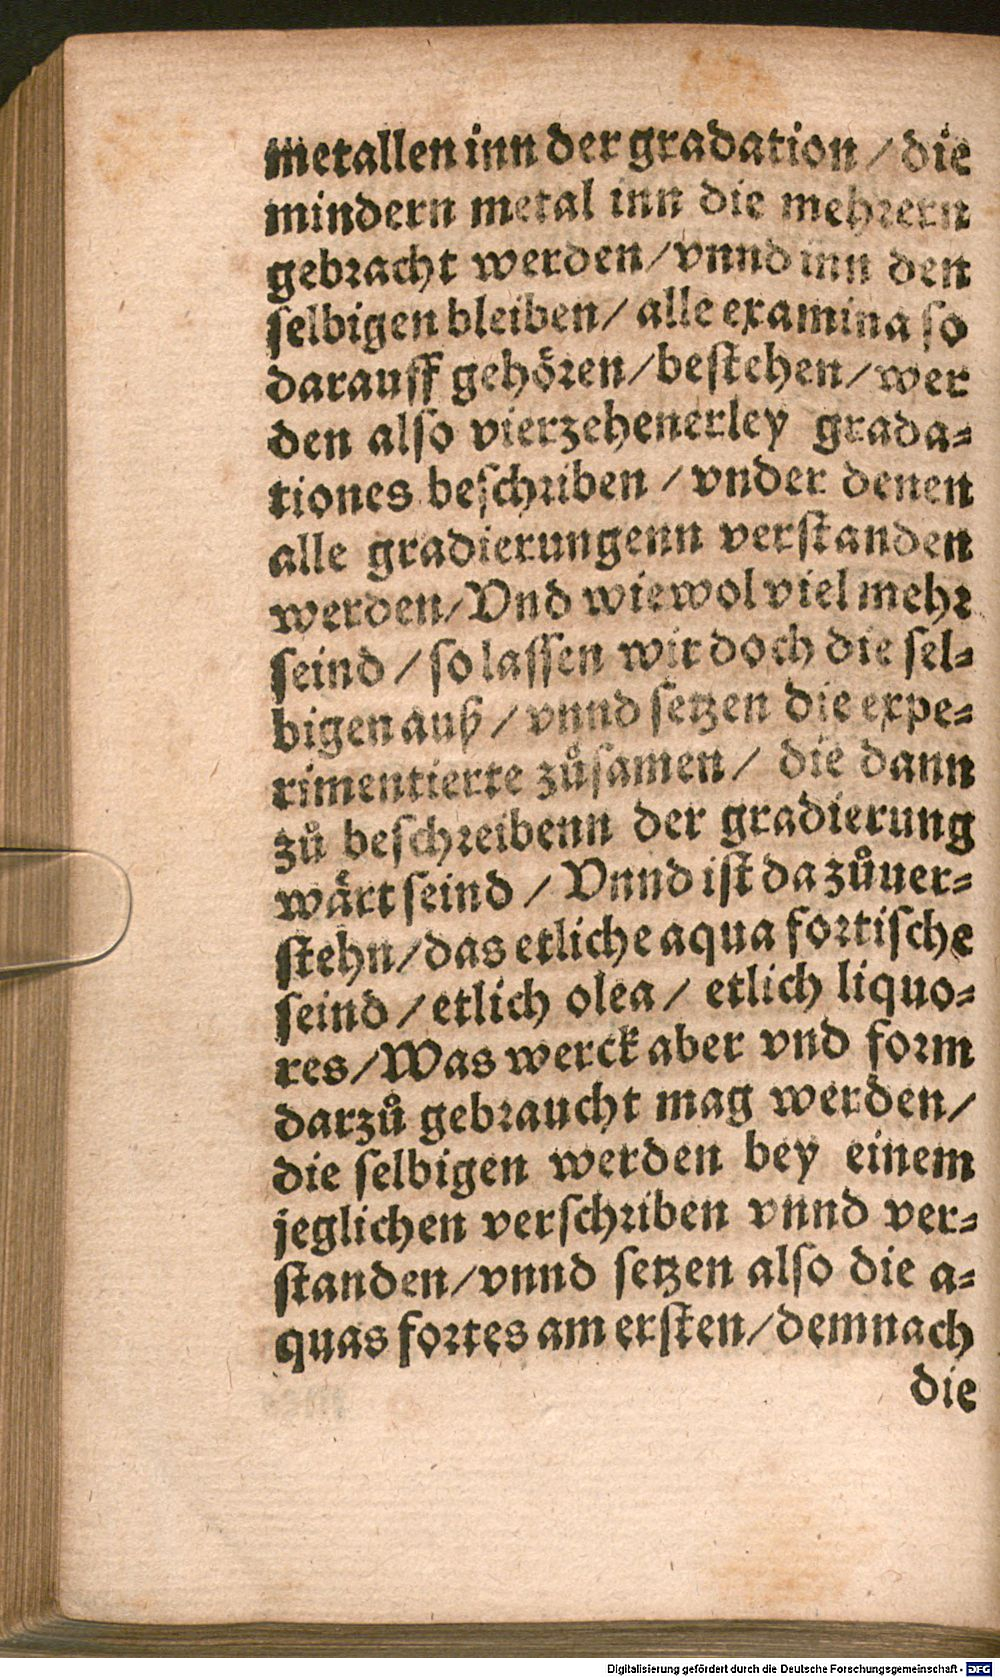 metallen inn der gradation / die
mindern metal inn die mehrern
gebracht werden / vnnd inn den
selbigen bleiben / alle examina so
darauff gehören / bestehen / wer
den also vierzehenerley grada-
tiones beschriben / vnder denen
alle gradierungenn verstanden
werden / Vnd wiewol viel mehr
seind / so lassen wir doch die sel-
bigen auß / vnnd setzen die expe-
rimentierte zůsamen / die dann
zů beschreibenn der gradierung
wärt seind / Vnnd ist da zůuer-
stehn / das etliche aqua fortische
seind / etlich olea / etlich liquo-
res / Was werck aber vnd form
darzů gebraucht mag werden /
die selbigen werden bey einem
jeglichen verschriben vnnd ver-
standen / vnnd setzen also die a-
quas fortes am ersten / demnach
die
Digitalisierung gefördert durch die Deutsche Forschungsgemeinschaft - DFG